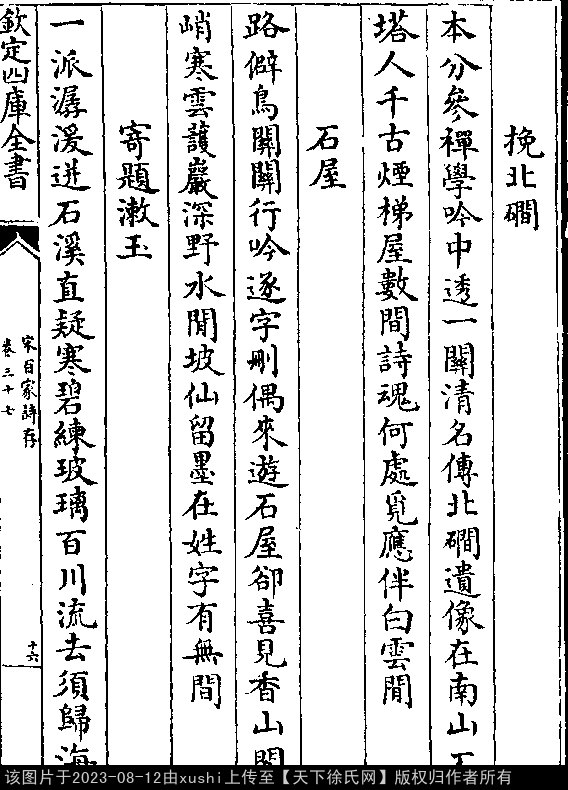 挽北磵
本分參禪學吟中透一關清名傳北磵遺像在南山
塔人千古煙梯屋數間詩魂何處覓應伴白雲閒
石屋
路僻鳥關關行吟逐字刪偶來遊石屋卻喜見香山
峭寒雲護巖深野水閒坡仙留墨在姓字有無間
寄題漱玉
一派潺湲迸石溪直疑寒碧練玻璃百川流去須歸海
欽定四庫全書
宋百家詩存
卷三十七
十六
该图片于2023-08-12由xushi上传至【天下徐氏网】版权归作者所有